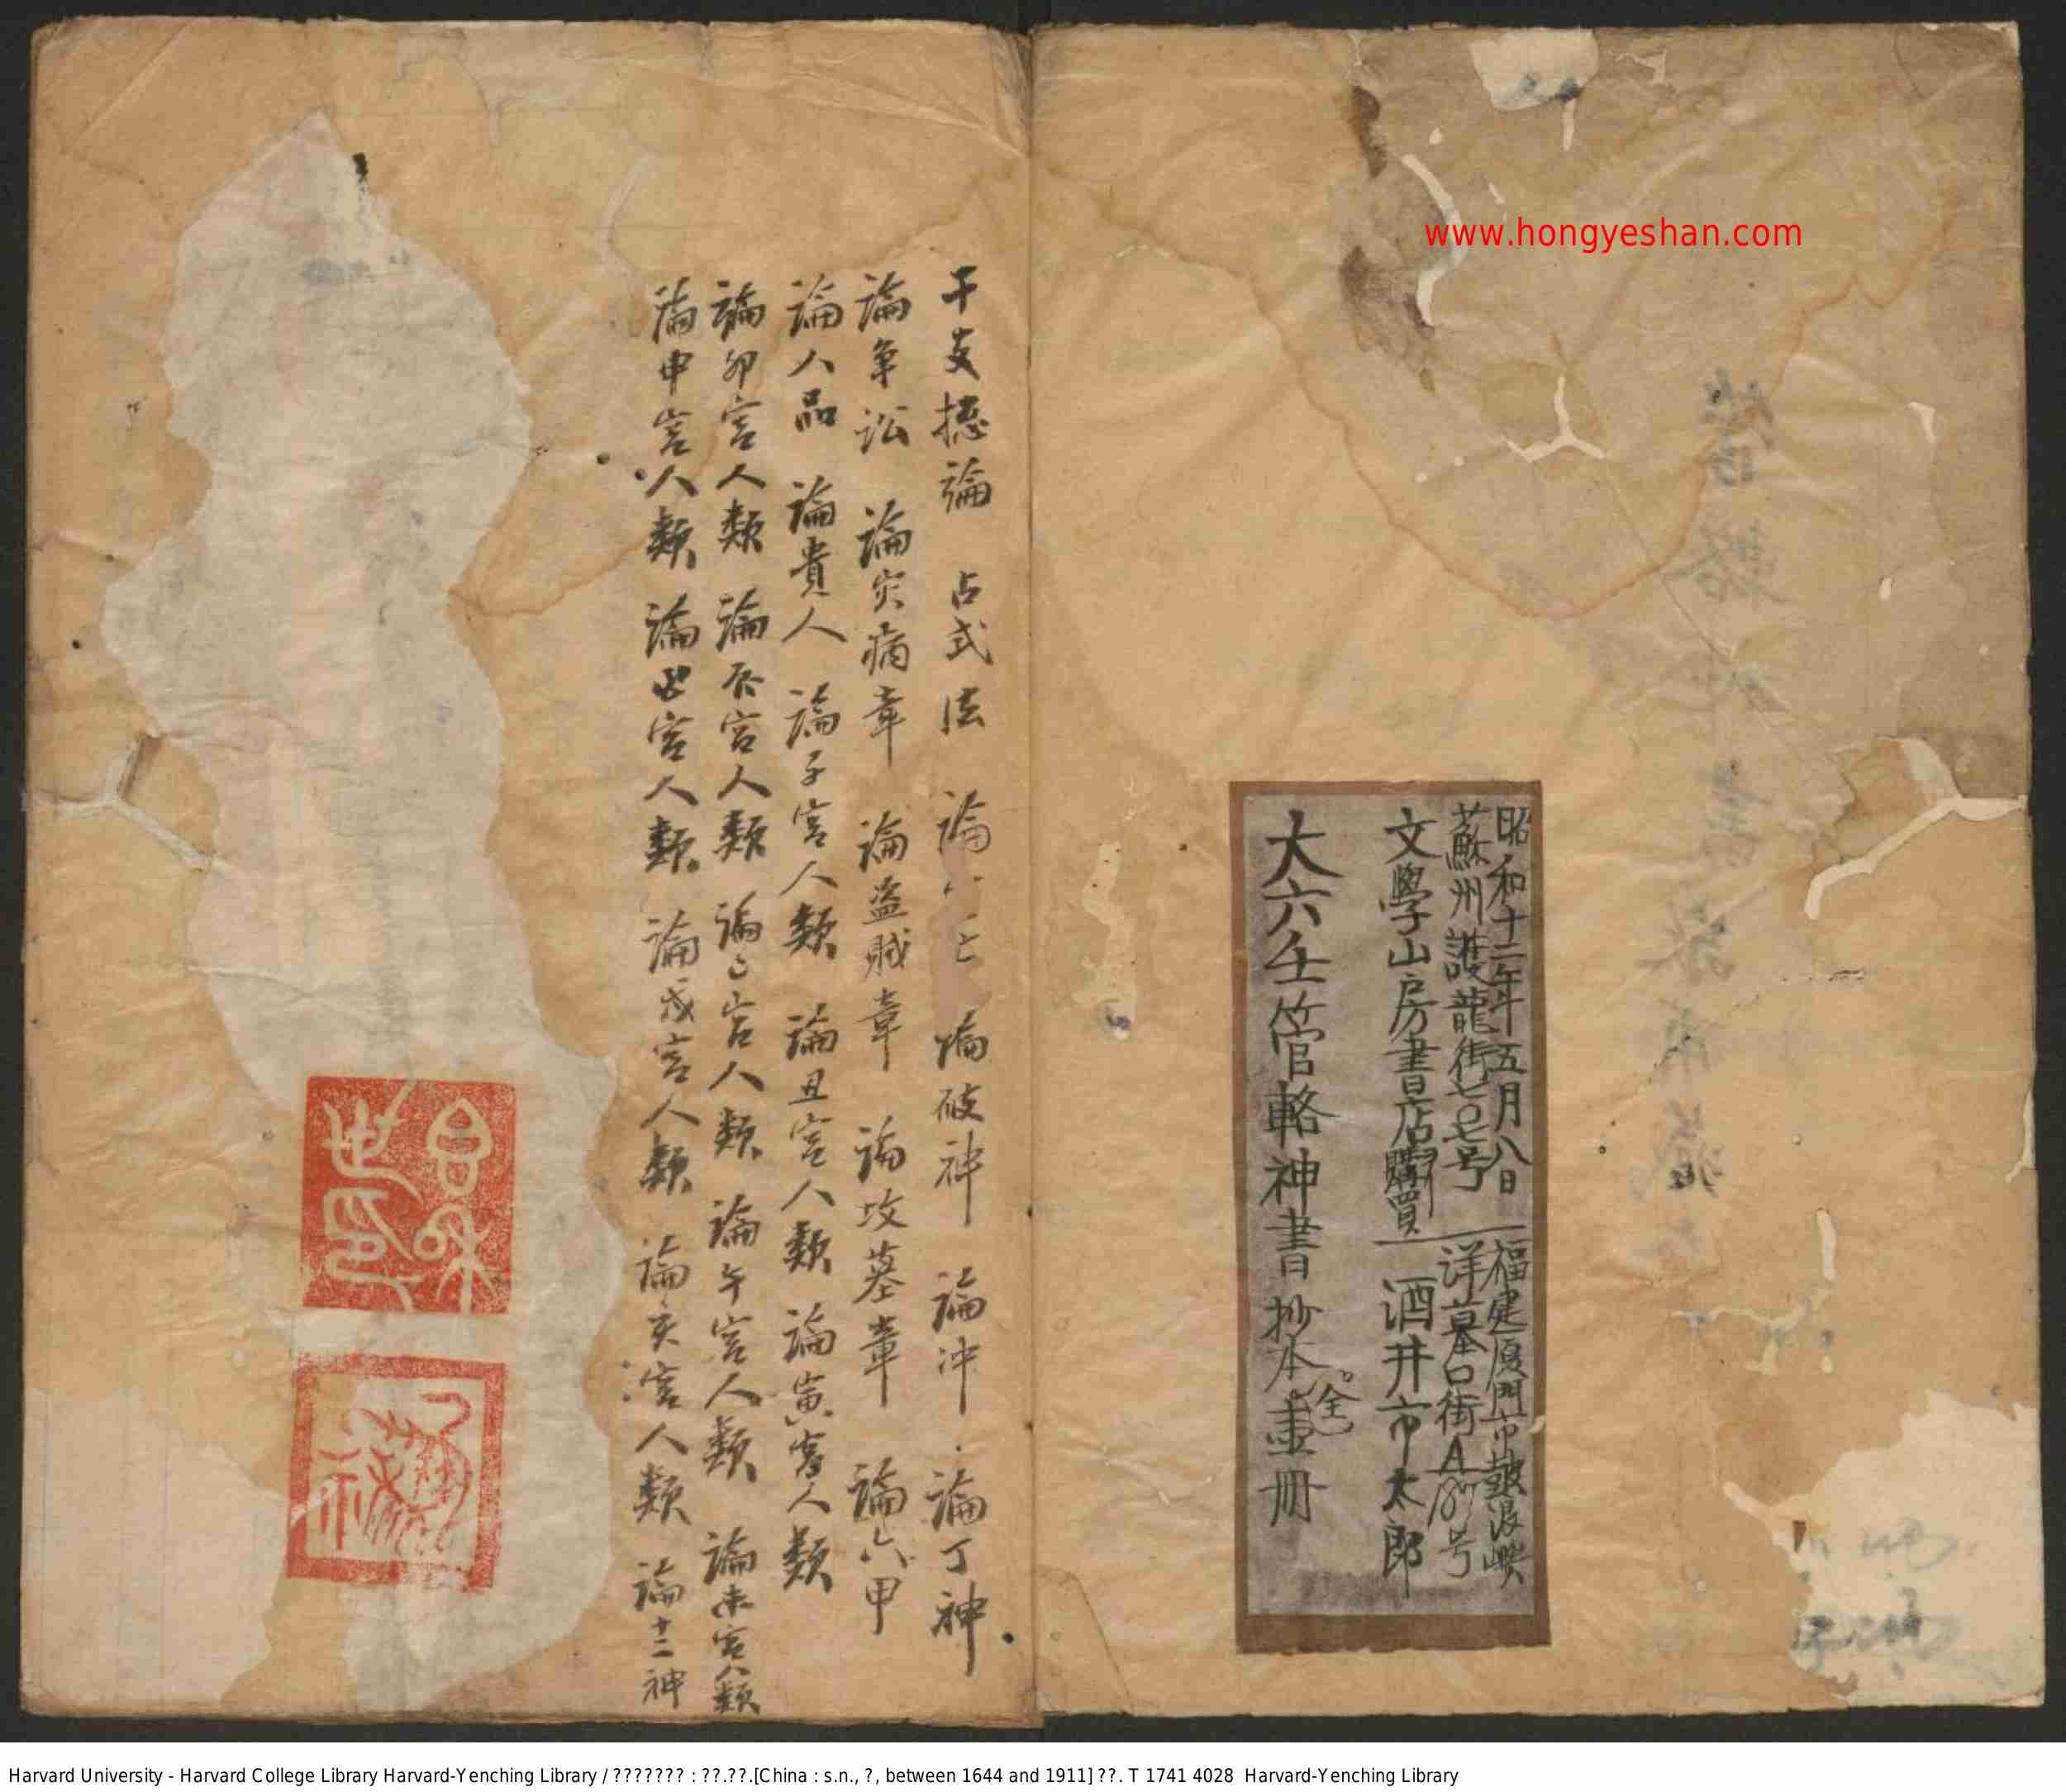 www.hongyeshan.com
昭和十二年五月八日
蘇州護龍街七〇七号
文學山房書店購買
福建厦門市鼓浪嶼
洋墓口街A187号
酒井市太郎
大六壬管輅神書抄本 全 壹冊
干支捴論 占式法 論 論破神 論冲 論丁神
論争訟 論灾病章 論盗賊章 論坟墓章 論六甲
論人品 論貴人 論子宮人類 論丑宮人類 論寅宮人類
論卯宮人類 論辰宮人類 論巳宮人類 論午宮人類 論未宮人類
論申宮人類 論酉宮人類 論戌宮人類 論亥宮人類 論十二神
Harvard University - Harvard College Library Harvard-Yenching Library / ??????? : ??.??.[China : s.n., ?, between 1644 and 1911] ??. T 1741 4028 Harvard-Yenching Library